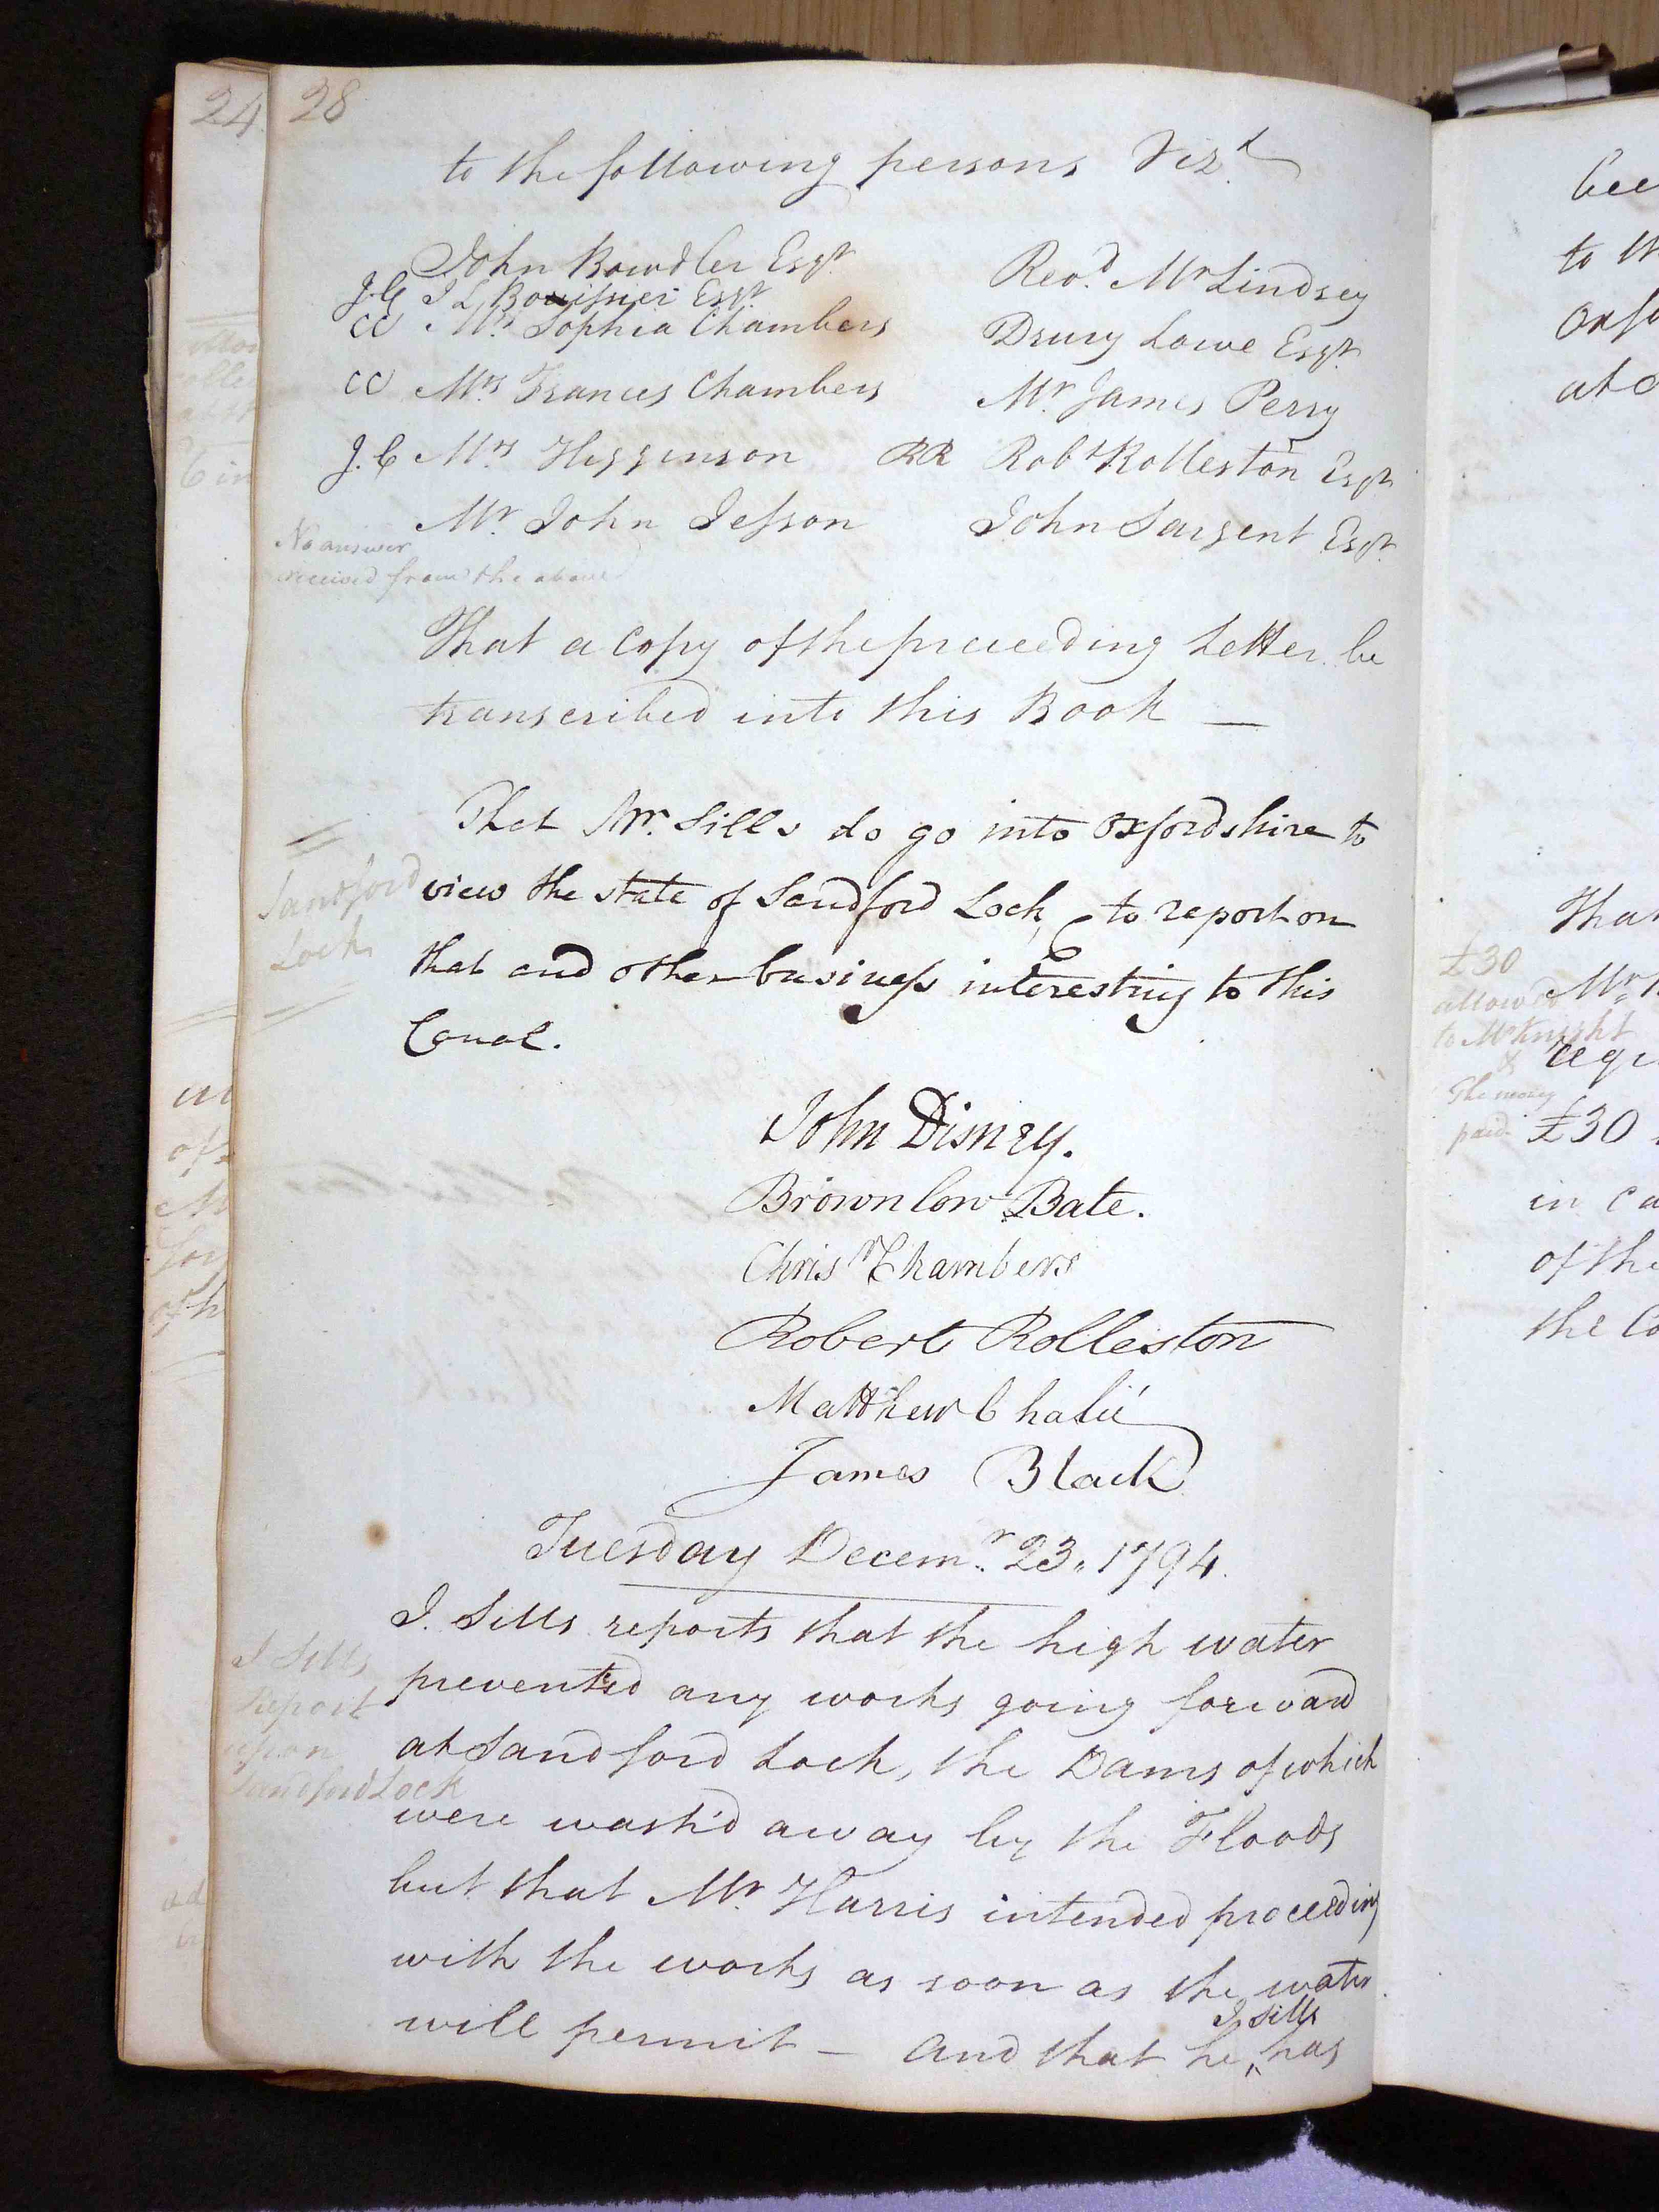 24
28
to the following persons Vizt.
John Bowdler Esqr.
J.G J L Bouissier Esqr.
CC Mrs. Sophia Chambers
CC Mrs. Frances Chambers
J.C Mrs. Higginson
Mr. John Jesson
Revd. Mr Lindsey
Drury Lowe Esqr.
Mr. James Perry
RR Robt Rolleston Esqr
John Sargent Esqr.
No answer
received from the above
That a Copy of the preceeding Letter be
transcribed into this Book —
Sandford
Lock
That Mr. Sills do go into Oxfordshire to
view the state of Sandford Lock, to report on
that and other business interesting to this
Canal.
John Disney.
Brownlow Bate.
Chrisr Chambers
Robert Rolleston
Matthew Chalié
James Black
Tuesday Decemr. 23, 1794.
J Sills
Report
upon
Sandford Lock
J. Sills reports that the high water
prevented any works going forward
at Sandford Lock, the Dams of which
were wash'd away by the Floods
but that Mr. Harris intended proceeding
with the works as soon as the water
will permit — and that he J Sills has
to th
at
That
£30
allow'd
to Mr Knight
Mr
The money
paid
£30
in ca
of the
the Co